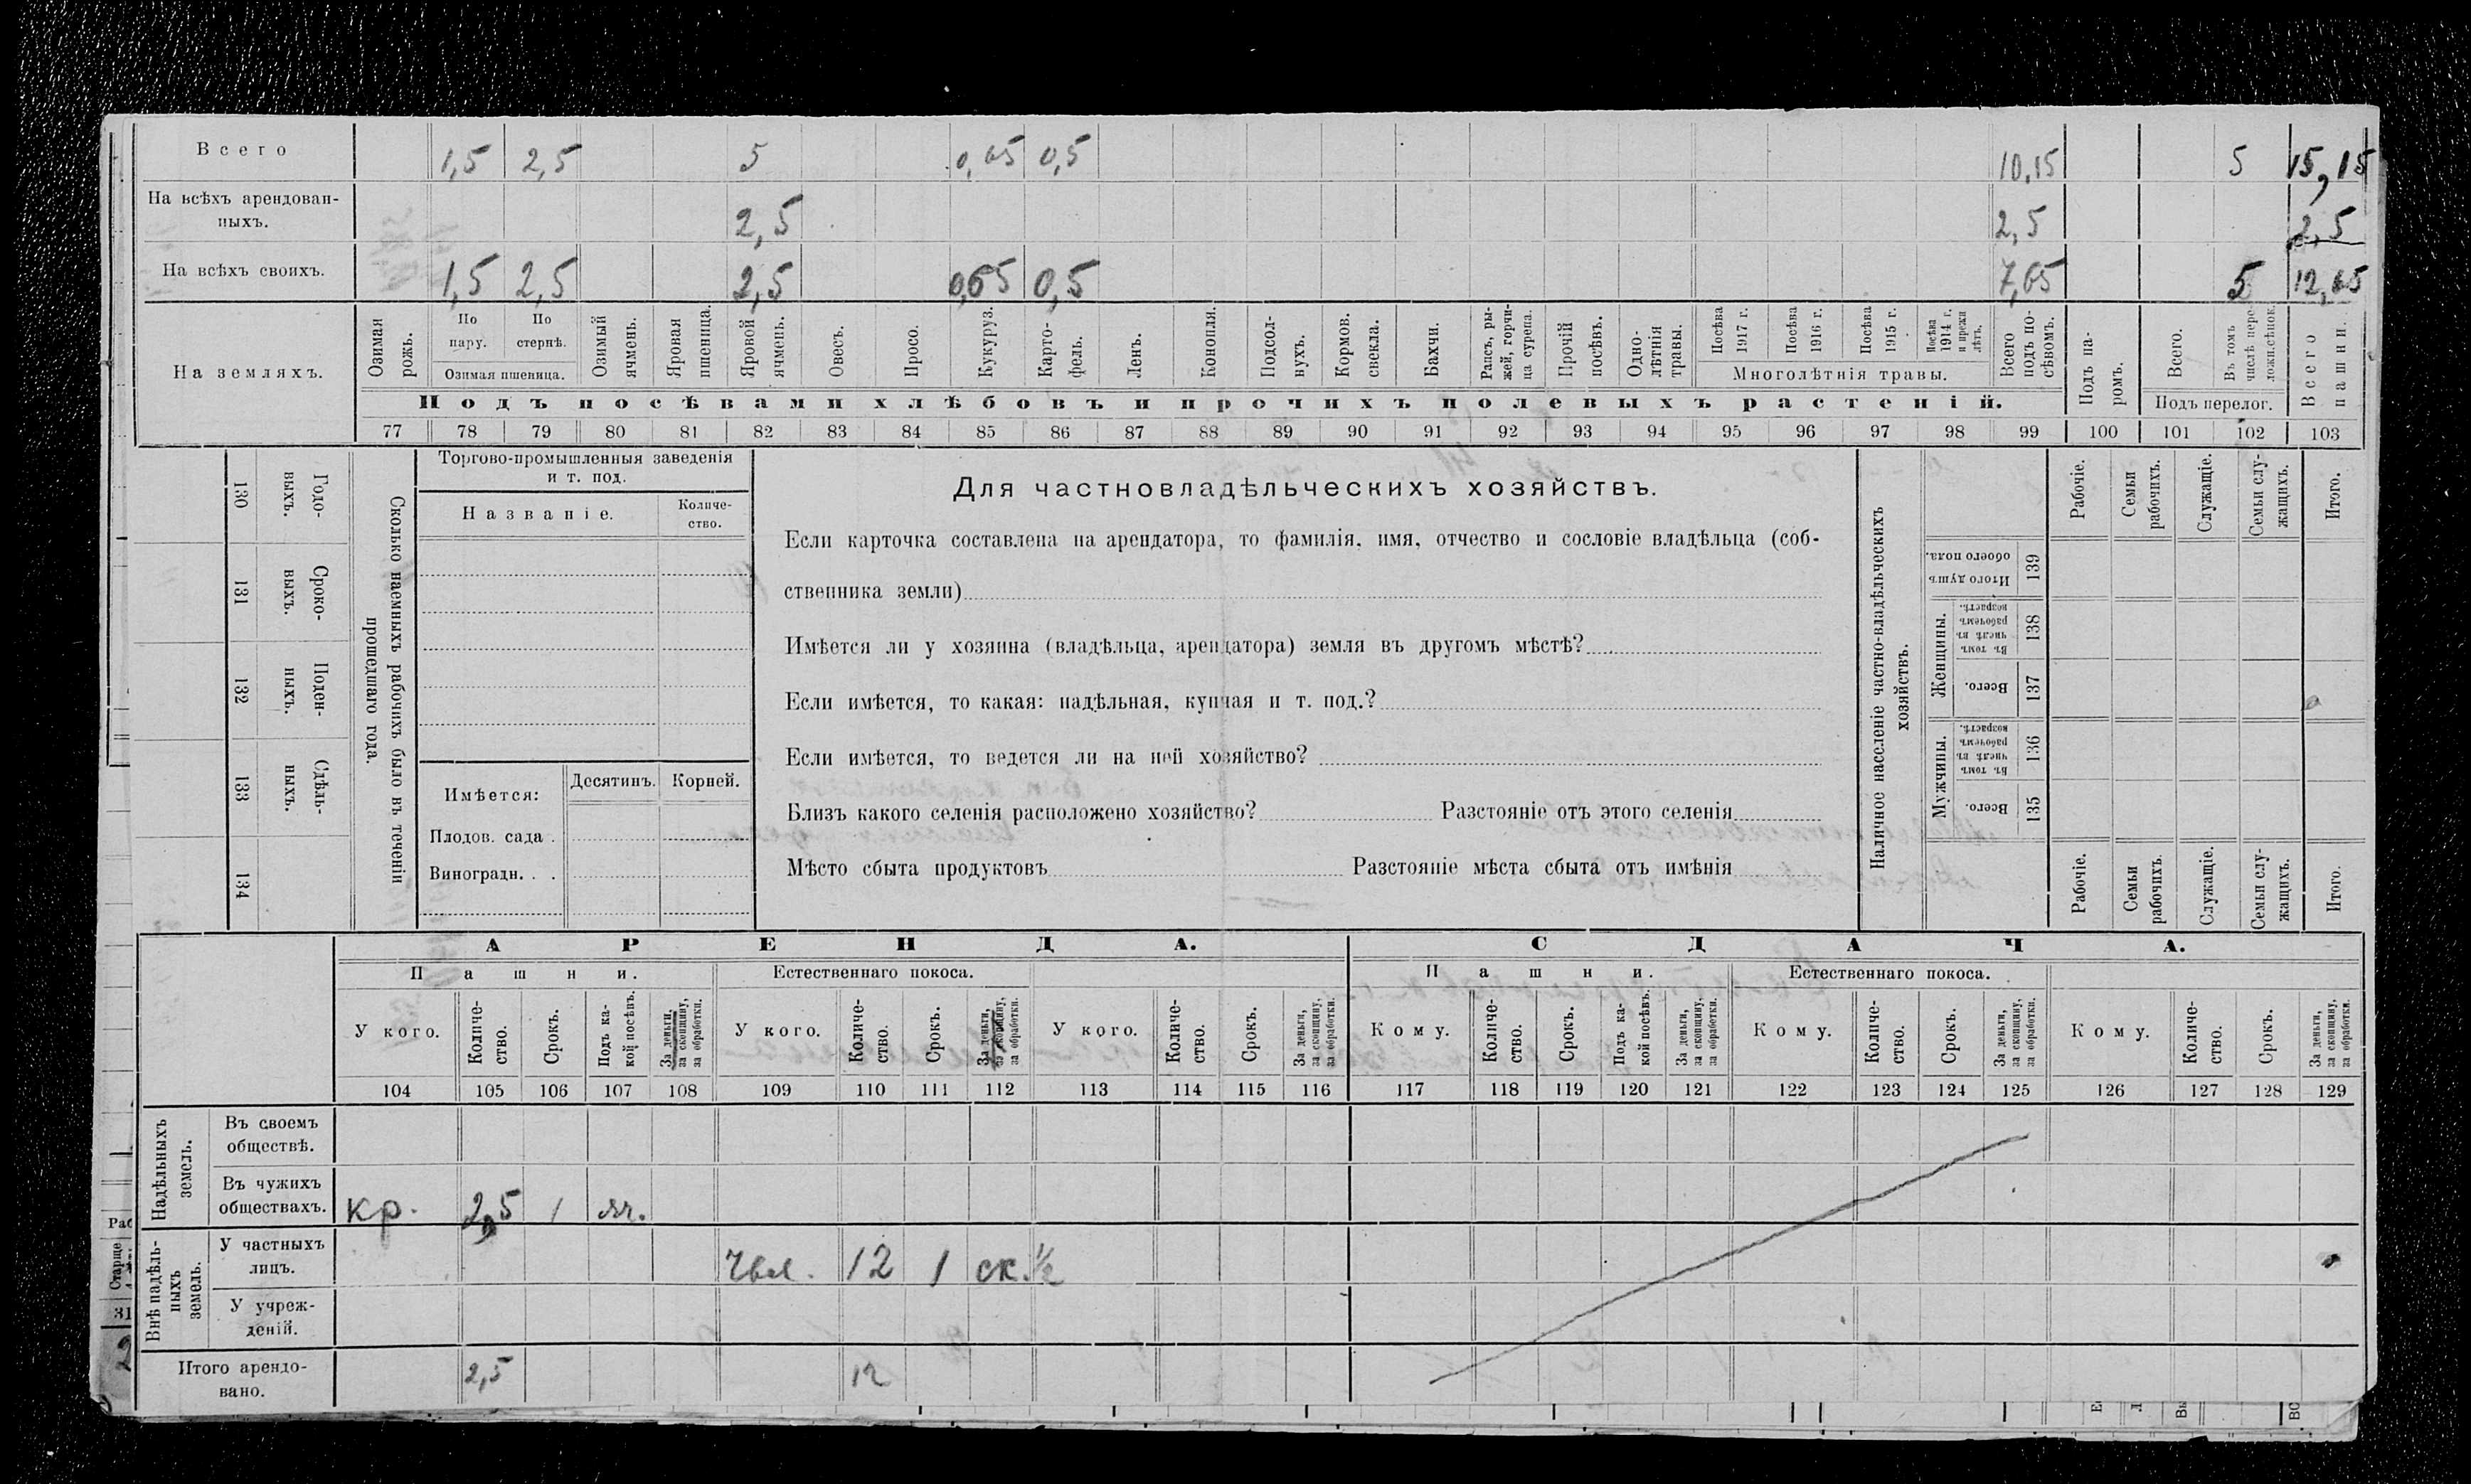 Всего 1,5 2,5 5 0,65 0,5 10,15 5 15,15
На всѣхъ арендован-
ныхъ. 2,5 2,5 2,5
На всѣхъ своихъ. 1,5 2,5 2,5 0,65 0,5 7,65 5 12,65
На земляхъ.
Озимая рожь.
По пару.
По стернѣ.
Озимая пшеница.
Озимый ячмень.
Яровая пшеница.
Яровой ячмень.
Овесъ.
Просо.
Кукуруз.
Карто-
фель.
Ленъ.
Конопля.
Подсол-
нухъ.
Кормов. свекла.
Бахчи.
Рапсъ, ры-
жей, горчи-
ца сурепа.
Прочій посѣвъ.
Одно-
лѣтнія травы.
Посѣва 1917 г.
Посѣва 1916 г.
Посѣва 1915 г.
Посѣва 1914 г. и прежн лѣтъ.
Многолѣтнія травы.
Всего подъ по-
сѣвомъ.
Подъ па-
ромъ.
Всего.
Въ томъ числѣ пере-
ложн.сѣнок.
Подъ перелог.
Всего пашни.
Подъ посѣвами хлѣбовъ и прочихъ полевыхъ растеній.
77 78 79 80 81 82 83 84 85 86 87 88 89 90 91 92 93 94 95 96 97 98 99 100 101 102 103
Годо-
выхъ.
130
Сроко-
выхъ.
131
Поден-
ныхъ.
132
Сдѣль-
ныхъ.
133
134
Сколько наемныхъ рабочихъ было въ теченіи
прошедшаго года.
Торгово-промышленныя заведенія
и т. под.
Названіе.
Количе-
ство.
Имѣется:
Десятинъ.
Корней.
Плодов. сада .
Виноградн. . .
Для частновладѣльческихъ хозяйствъ.
Если карточка составлена на арендатора, то фамилія, имя, отчество и сословіе владѣльца (соб-
ственника земли)
Имѣется ли у хозяина (владѣльца, арендатора) земля въ другомъ мѣстѣ?
Если имѣется, то какая: надѣльная, купчая и т. под.?
Если имѣется, то ведется ли на ней хозяйство?
Близъ какого селенія расположено хозяйство? Разстояніе отъ этого селенія
Мѣсто сбыта продуктовъ Разстояніе мѣста сбыта отъ имѣнія
Наличное населеніе частно-владѣльческихъ
хозяйствъ.
Рабочіе.
Семьи рабочихъ.
Служащіе.
Семьи слу-
жащихъ.
Итого.
Итого душъ обоего пола.
139
Женщины.
Въ томъ числѣ въ рабочемъ возрастѣ.
138
Всего.
137
Мужчины.
Въ томъ числѣ въ рабочемъ возрастѣ.
136
Всего.
135
Рабочіе.
Семьи рабочихъ.
Служащіе.
Семьи слу-
жащихъ.
Итого.
АРЕНДА. СДАЧА.
Пашни. Естественнаго покоса. Пашни. Естественнаго покоса.
У кого.
Количе-
ство.
Срокъ.
Подъ ка-
кой посѣвъ.
За деньги, за скопщину, за обработки.
У кого.
Количе-
ство.
Срокъ.
За деньги, за скопщину, за обработки.
У кого.
Количе-
ство.
Срокъ.
За деньги, за скопщину, за обработки.
Кому.
Количе-
ство.
Срокъ.
Подъ ка-
кой посѣвъ.
За деньги, за скопщину, за обработки.
Кому.
Количе-
ство.
Срокъ.
За деньги, за скопщину, за обработки.
Кому.
Количе-
ство.
Срокъ.
За деньги, за скопщину, за обработки.
104 105 106 107 108 109 110 111 112 113 114 115 116 117 118 119 120 121 122 123 124 125 126 127 128 129
Надѣльныхъ земель.
Въ своемъ
обществѣ.
Въ чужихъ
обществахъ. кр. 2,5 1 яч.
Внѣ надѣль-
ныхъ земель.
У частныхъ
лицъ. 12 1 ск. ½
У учреж-
деній.
Итого арендо-
вано. 2,5 12
Раб
Старше
31